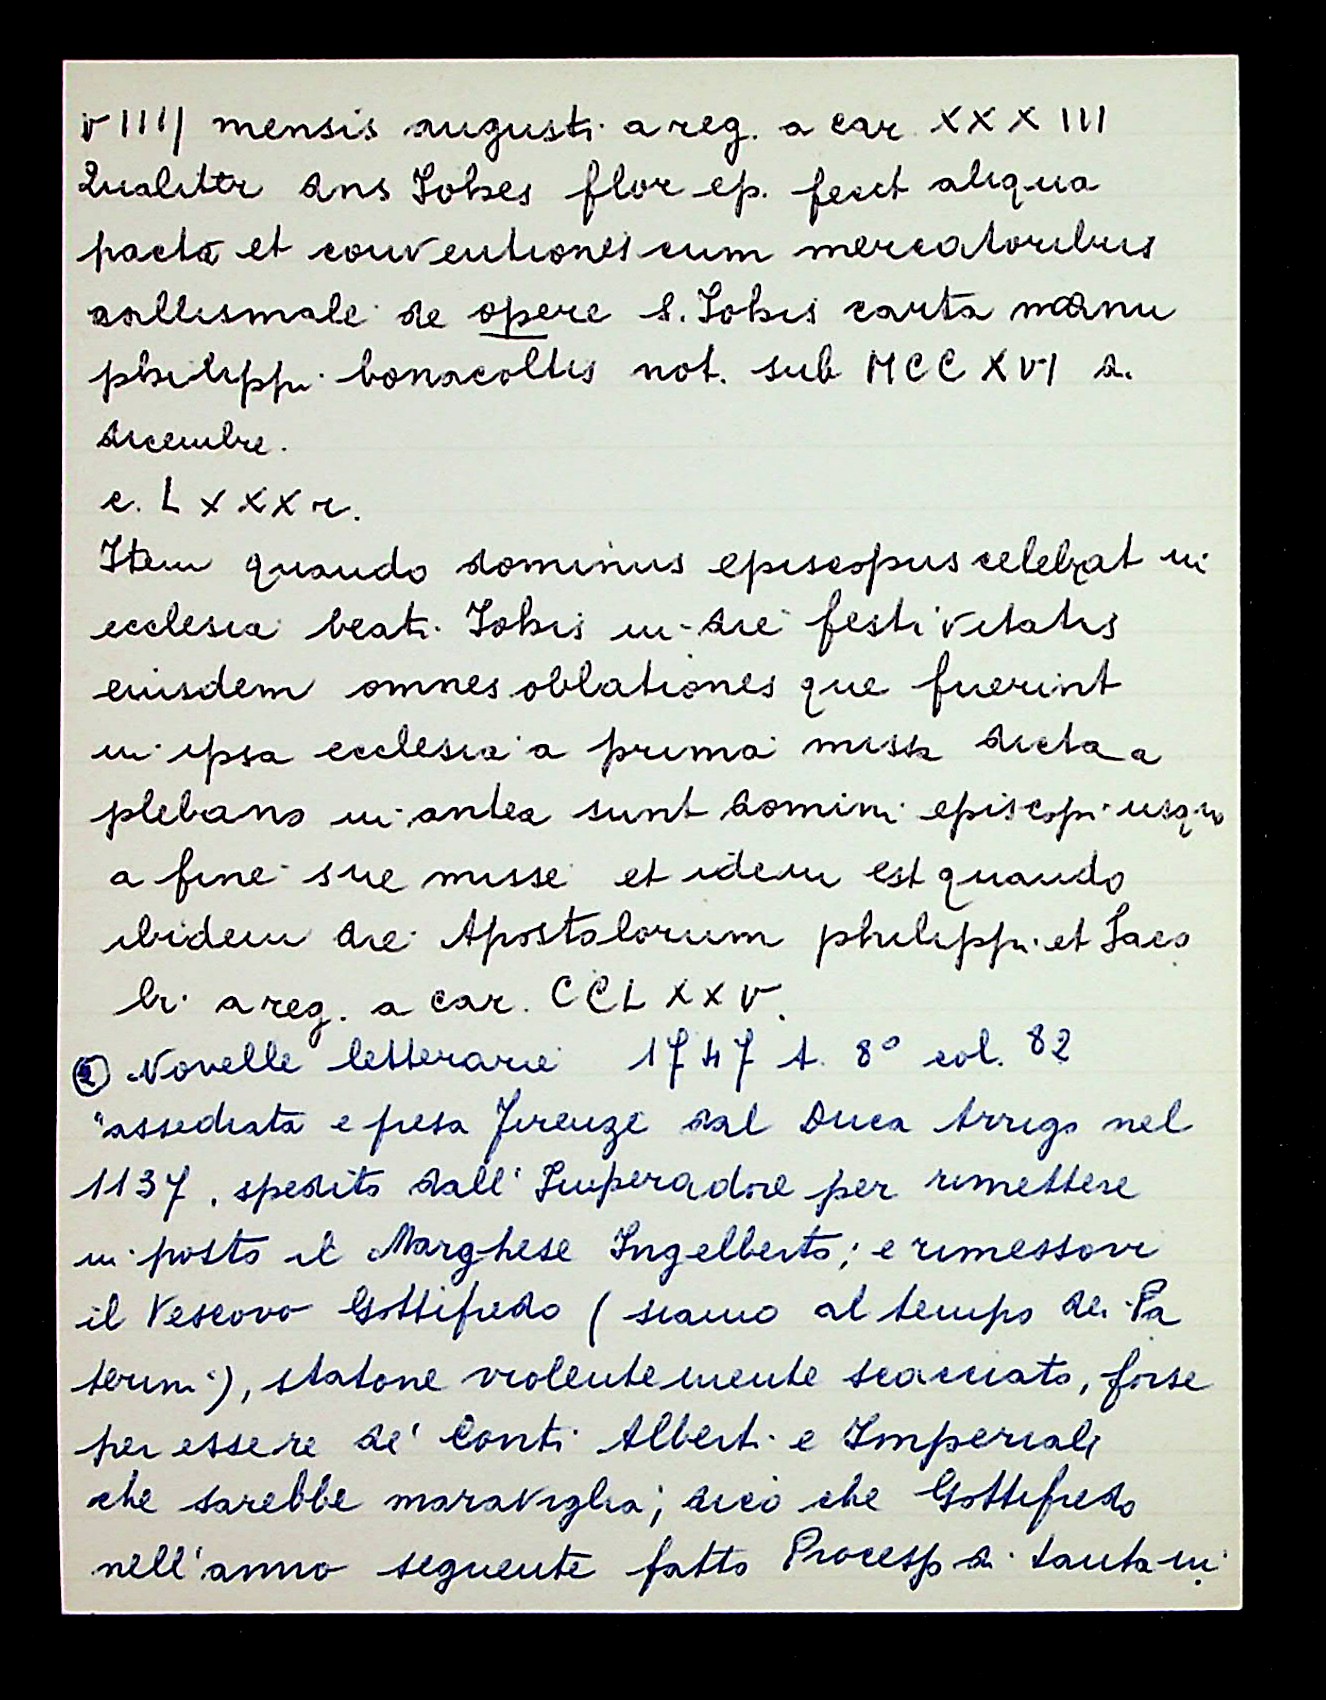 VIIII mensis augusti a reg. a car XXXIII
Qualiter dns Johes flor ep. fecit aliqua
pacta et conventiones cum mercatoribus
callismale de opere S. Johis carta manu
philippi bonacoltis not. sub MCCXVI d.
dicembre.
c. LXXX r.
Item quando dominus episcopus celebrat in
ecclesia beati Johis in die festivitatis
eiusdem omnes oblationes que fuerint
in ipsa ecclesia a prima missa dicta a
plebano in antea sunt domini episcopi usque
a fine sue misse et idem est quando
ibidem die Apostolorum philippi et Jaco
bi a reg. a car. CCLXXV.
② Novelle letterarie 1747 t. 8° col. 82
"assediata e presa Firenze dal Duca Arrigo nel
1137, spedito dall'Imperadore per rimettere
in posto il Marghese Ingelberto; e rimessovi
il Vescovo Gottifredo (siamo al tempo dei Pa
terini), statone violentemente scacciato, forse
per essere de' Conti Alberti e Imperiali
che sarebbe maraviglia; dico che Gottifredo
nell'anno seguente fatto Processo di tanta in